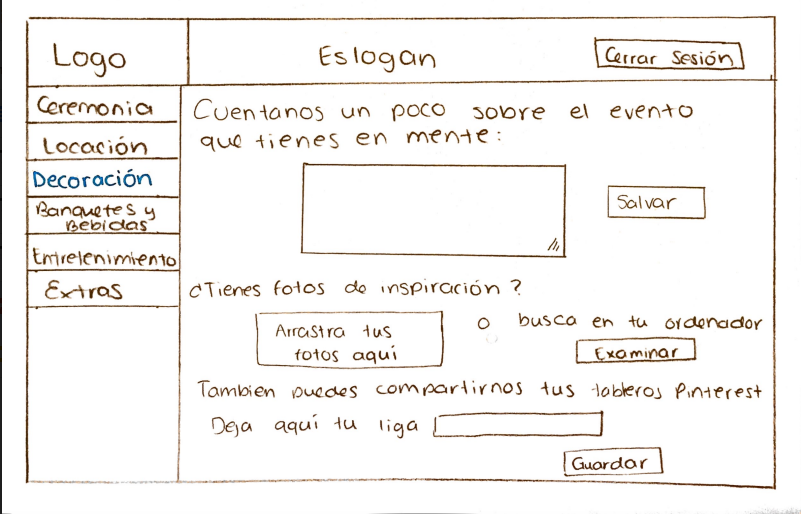 Logo
Eslogan
Cerrar Sesión
Ceremonia
Locación
Decoración
Banquetes y
Bebidas
Entretenimiento
Extras
Cuentanos un poco sobre el evento
que tienes en mente:
Salvar
¿Tienes fotos de inspiración?
Arrastra tus
fotos aquí
o busca en tu ordenador
Examinar
Tambien puedes compartirnos tus tableros Pinterest
Deja aquí tu liga
Guardar